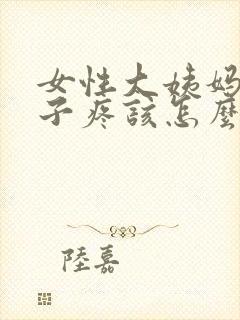 女性大姨妈
子疼該怎麼
陸嘉